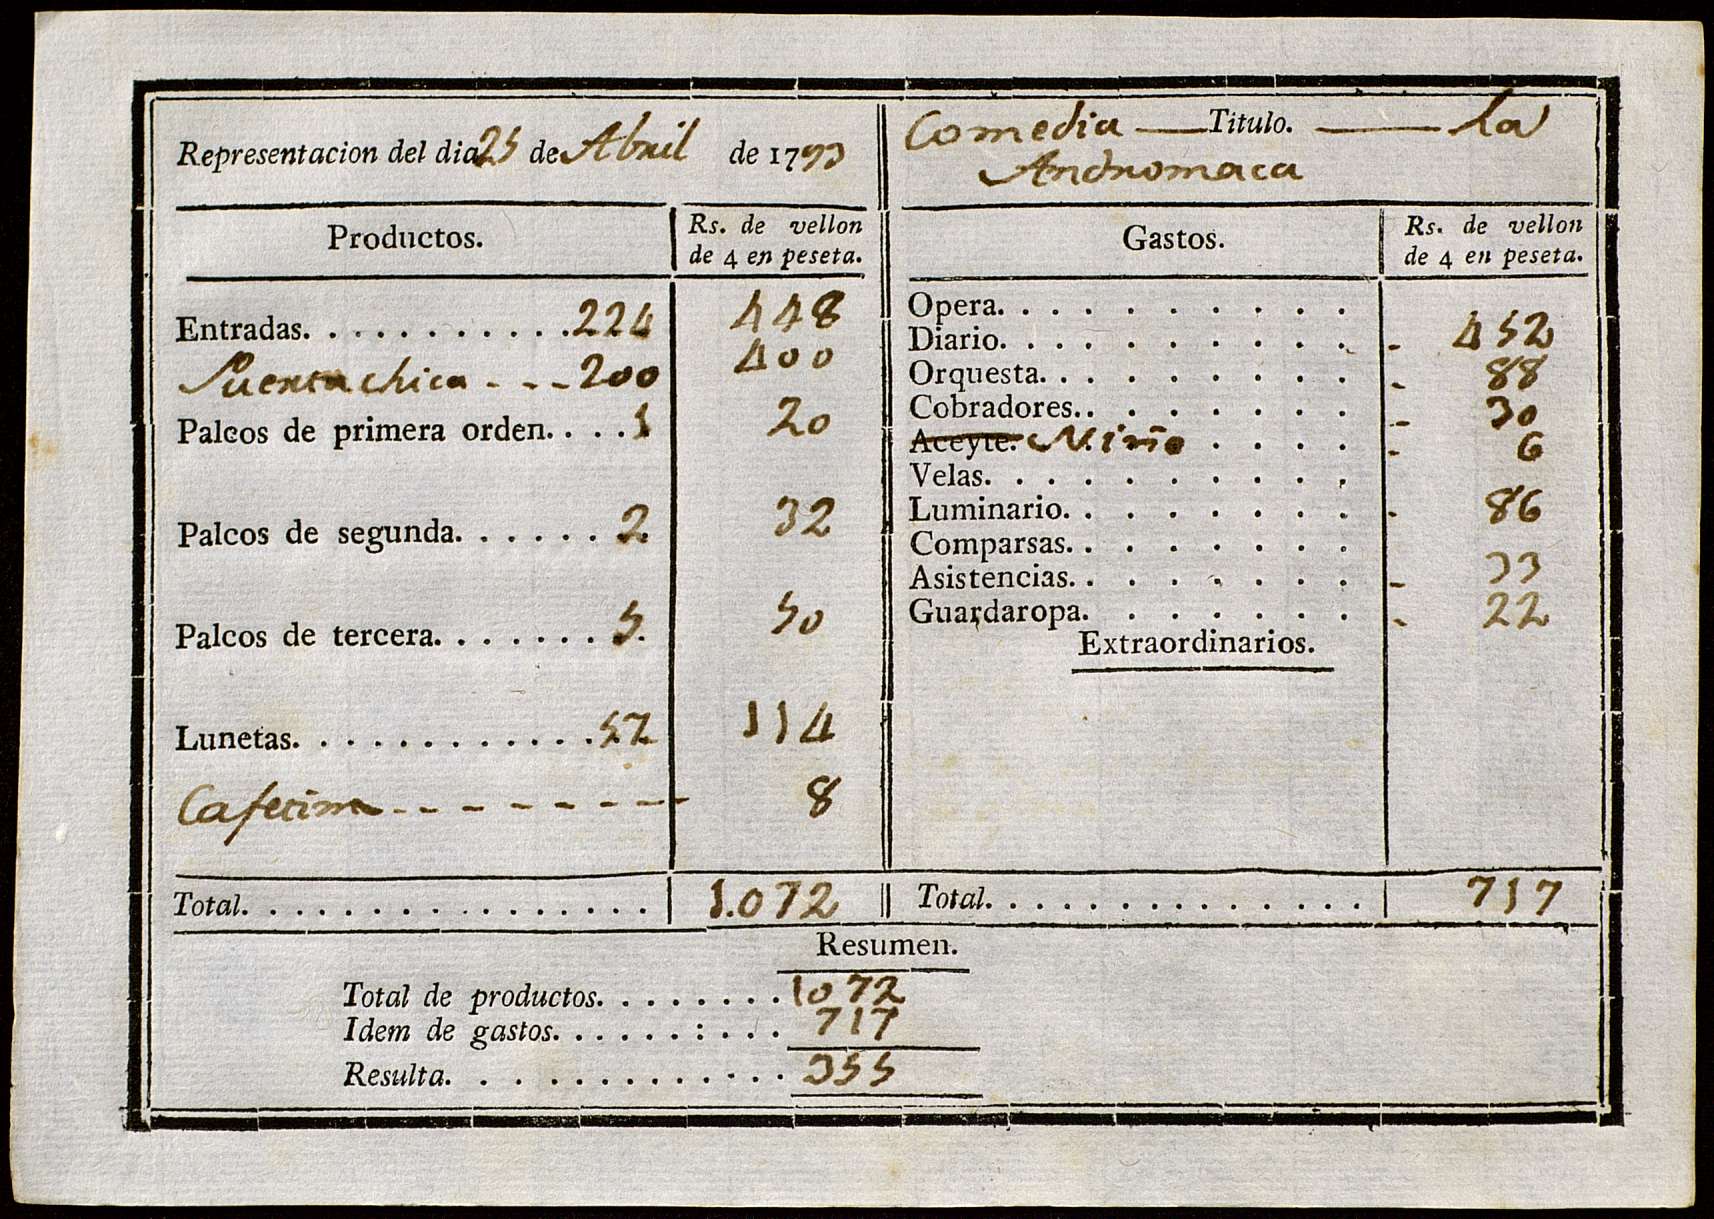 Representacion del dia 25 de Abril de 1793
Productos.
Rs. de vellon
de 4 en peseta.
Entradas. . . . . . . . . . . 224 448
Puerta chica - - - 200 400
Palcos de primera orden. . . . 1 20
Palcos de segunda. . . . . . . 2 32
Palcos de tercera. . . . . . . 5 50
Lunetas. . . . . . . . . . . . 57 114
- - - - - - - - 8
Total. . . . . . . . . . . . . . . . 1.072
Comedia — Titulo. — La
Andromaca
Gastos.
Rs. de vellon
de 4 en peseta.
Opera. . . . . . . . . .
Diario. . . . . . . . . . - 452
Orquesta. . . . . . . . . - 88
Cobradores. . . . . . . . - 30
Aceyte. Niño . . . . - 6
Velas. . . . . . . . . .
Luminario. . . . . . . . - 86
Comparsas. . . . . . . .
Asistencias. . . . . . . . - 33
Guardaropa. . . . . . . - 22
Extraordinarios.
Total. . . . . . . . . . . . . . . 717
Resumen.
Total de productos. . . . . . . . 1072
Idem de gastos. . . . . . : . . . 717
Resulta. . . . . . . . . . . . . 355